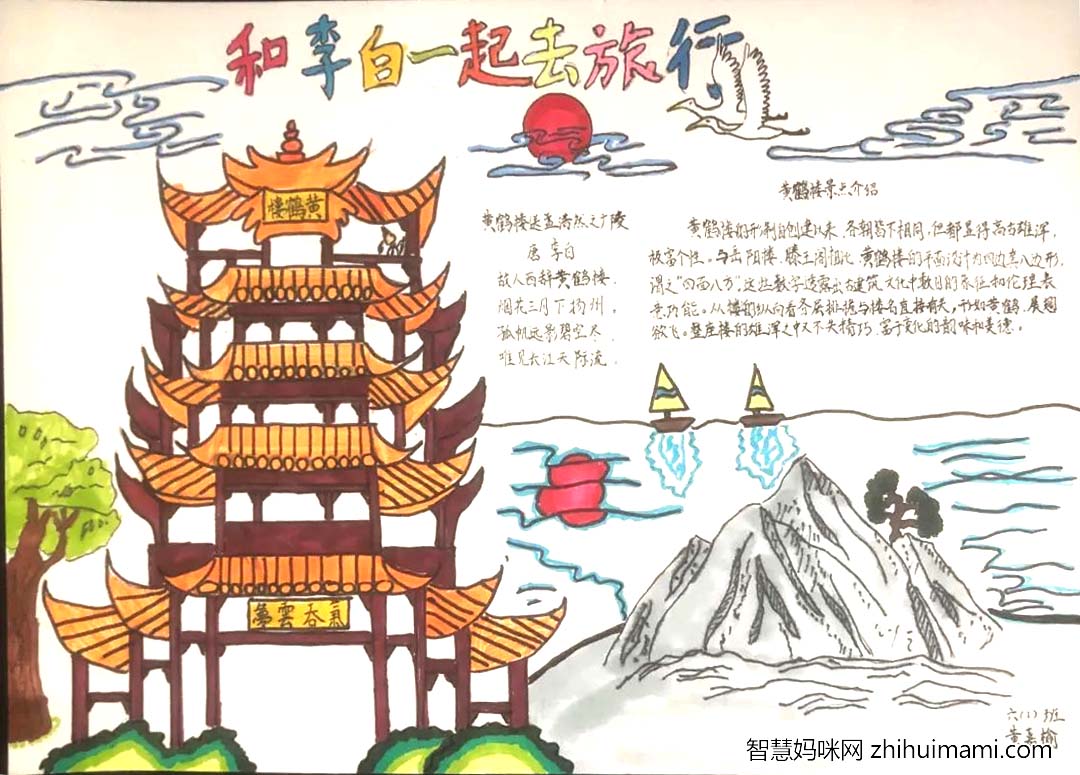 和李白一起去旅行
黄鹤楼
黄鹤楼送孟浩然之广陵
唐 李白
故人西辞黄鹤楼,
烟花三月下扬州。
孤帆远影碧空尽,
唯见长江天际流.
黄鹤楼景点介绍
黄鹤楼的形制自创建以来,各朝皆不相同,但都显得高古雄浑,
极富个性。与岳阳楼、滕王阁相比,黄鹤楼的平面设计为四边套八边形,
谓之“四面八方”。这些数字透露出古建筑文化中数目的象征和伦理表
意功能。从楼的纵向看各层排檐与楼名直接有关,形如黄鹤,展翅
欲飞。整座楼的雄浑之中又不失精巧,富于变化的韵味和美感。
氣吞雲夢
六(2)班
黄嘉榆
智慧妈咪网 zhihuimami.com